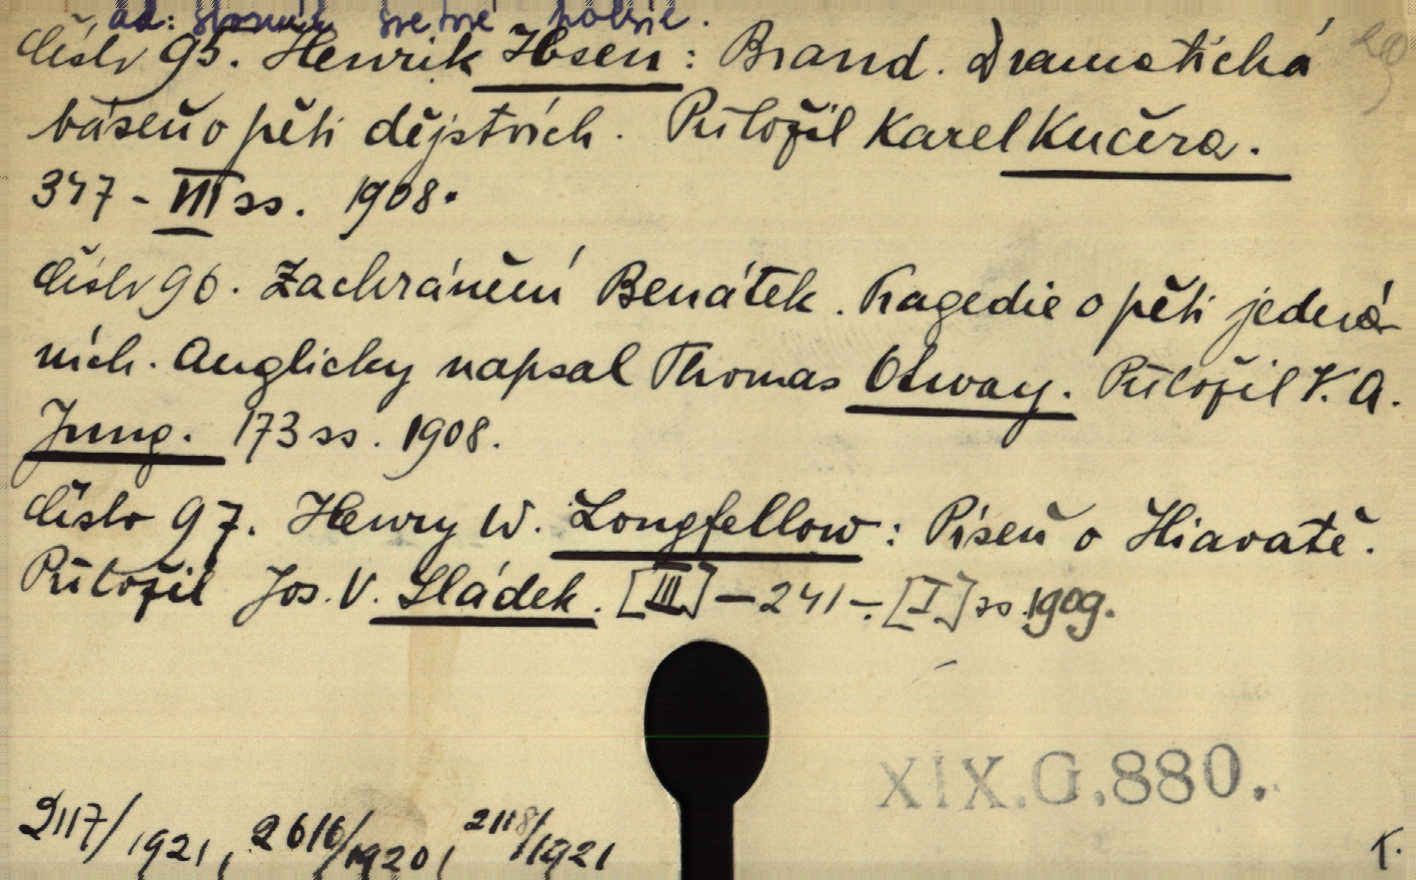 ad: Sborník světové poesie.
číslo 95. Henrik Ibsen: Brand. Dramatická
báseň o pěti dějstvích. Přeložil Karel Kučera.
347 - VIII ss. 1908.
číslo 96. Zachránění Benátek. Tragedie o pěti jedná-
ních. Anglicky napsal Thomas Otway. Přeložil V. A.
Jung. 173 ss. 1908.
číslo 97. Henry W. Longfellow: Píseň o Hiavatě.
Přeložil Jos. V. Sládek. [III] - 241 - [I] ss. 1909.
XIX.G.880.
2117/1921, 2616/1920, 2118/1921
K.